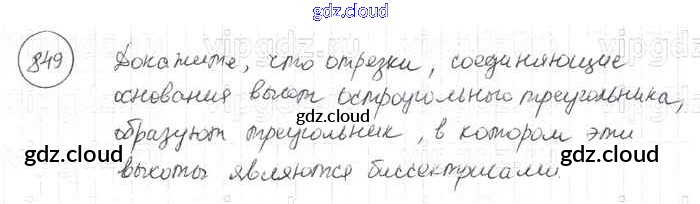 gdz.cloud
849 Докажите, что отрезки, соединяющие
основания высот остроугольного треугольника,
gdz.cloud
образуют треугольник, в котором эти
gdz.cloud gdz.cloud
высоты являются биссектрисами
gdz.cloud